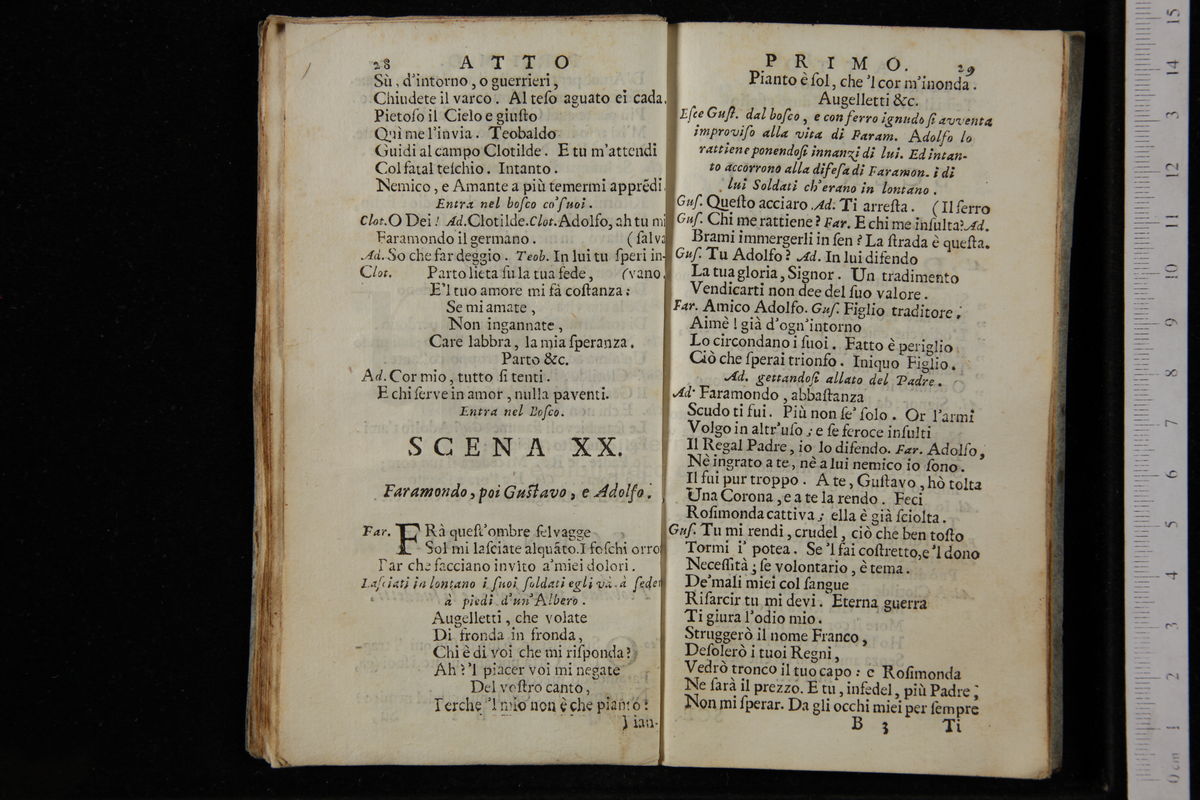 28 ATTO
Sù, d'intorno, o guerrieri,
Chiudete il varco. Al teſo aguato ei cada.
Pietoſo il Cielo e giuſto
Quì me l'invia. Teobaldo
Guidi al campo Clotilde. E tu m'attendi
Col fatal teſchio. Intanto.
Nemico, e Amante a più temermi apprẽdi.
Entra nel boſco co' ſuoi.
Clot. O Dei! Ad. Clotilde. Clot. Adolfo, ah tu mi
Faramondo il germano. (ſalva
Ad. So che far deggio. Teob. In lui tu ſperi in-
Clot. Parto lieta ſu la tua fede, (vano.
E'l tuo amore mi fà coſtanza:
Se mi amate,
Non ingannate,
Care labbra, la mia ſperanza.
Parto &c.
Ad. Cor mio, tutto ſi tenti.
E chi ſerve in amor, nulla paventi.
Entra nel Boſco.
SCENA XX.
Faramondo, poi Guſtavo, e Adolfo.
Far. FRà queſt'ombre ſelvagge
Sol mi laſciate alquãto. I foſchi orro
Par che facciano invito a' miei dolori.
Laſciati in lontano i ſuoi ſoldati egli và à ſeder
à piedi d'un' Albero.
Augelletti, che volate
Di fronda in fronda,
Chi è di voi che mi riſponda?
Ah? 'l piacer voi mi negate
Del voſtro canto,
Perche 'l mio non è che pianto:
Pian-
PRIMO. 29
Pianto è ſol, che 'l cor m'inonda.
Augelletti &c.
Eſce Guſt. dal boſco, e con ferro ignudo ſi avventa
improviſo alla vita di Faram. Adolfo lo
rattiene ponendoſi innanzi di lui. Ed intan-
to accorrono alla difeſa di Faramon. i di
lui Soldati ch'erano in lontano.
Guſ. Queſto acciaro. Ad. Ti arreſta. (Il ferro
Guſ. Chi me rattiene? Far. E chi me inſulta? Ad.
Brami immergerli in ſen? La ſtrada è queſta.
Guſ. Tu Adolfo? Ad. In lui difendo
La tua gloria, Signor. Un tradimento
Vendicarti non dee del ſuo valore.
Far. Amico Adolfo. Guſ. Figlio traditore.
Aimè! già d'ogn'intorno
Lo circondano i ſuoi. Fatto è periglio
Ciò che ſperai trionfo. Iniquo Figlio.
Ad. gettandoſi allato del Padre.
Ad. Faramondo, abbaſtanza
Scudo ti fui. Più non ſe' ſolo. Or l'armi
Volgo in altr'uſo; e ſe feroce inſulti
Il Regal Padre, io lo difendo. Far. Adolfo,
Nè ingrato a te, nè a lui nemico io ſono.
Il fui pur troppo. A te, Guſtavo, hò tolta
Una Corona, e a te la rendo. Feci
Roſimonda cattiva; ella è già ſciolta.
Guſ. Tu mi rendi, crudel, ciò che ben toſto
Tormi i' potea. Se 'l fai coſtretto, e 'l dono
Neceſſità; ſe volontario, è tema.
De' mali miei col ſangue
Riſarcir tu mi devi. Eterna guerra
Ti giura l'odio mio.
Struggerò il nome Franco,
Deſolerò i tuoi Regni,
Vedrò tronco il tuo capo: e Roſimonda
Ne ſarà il prezzo. E tu, infedel, più Padre
Non mi ſperar. Da gli occhi miei per ſempre
B 3 Ti